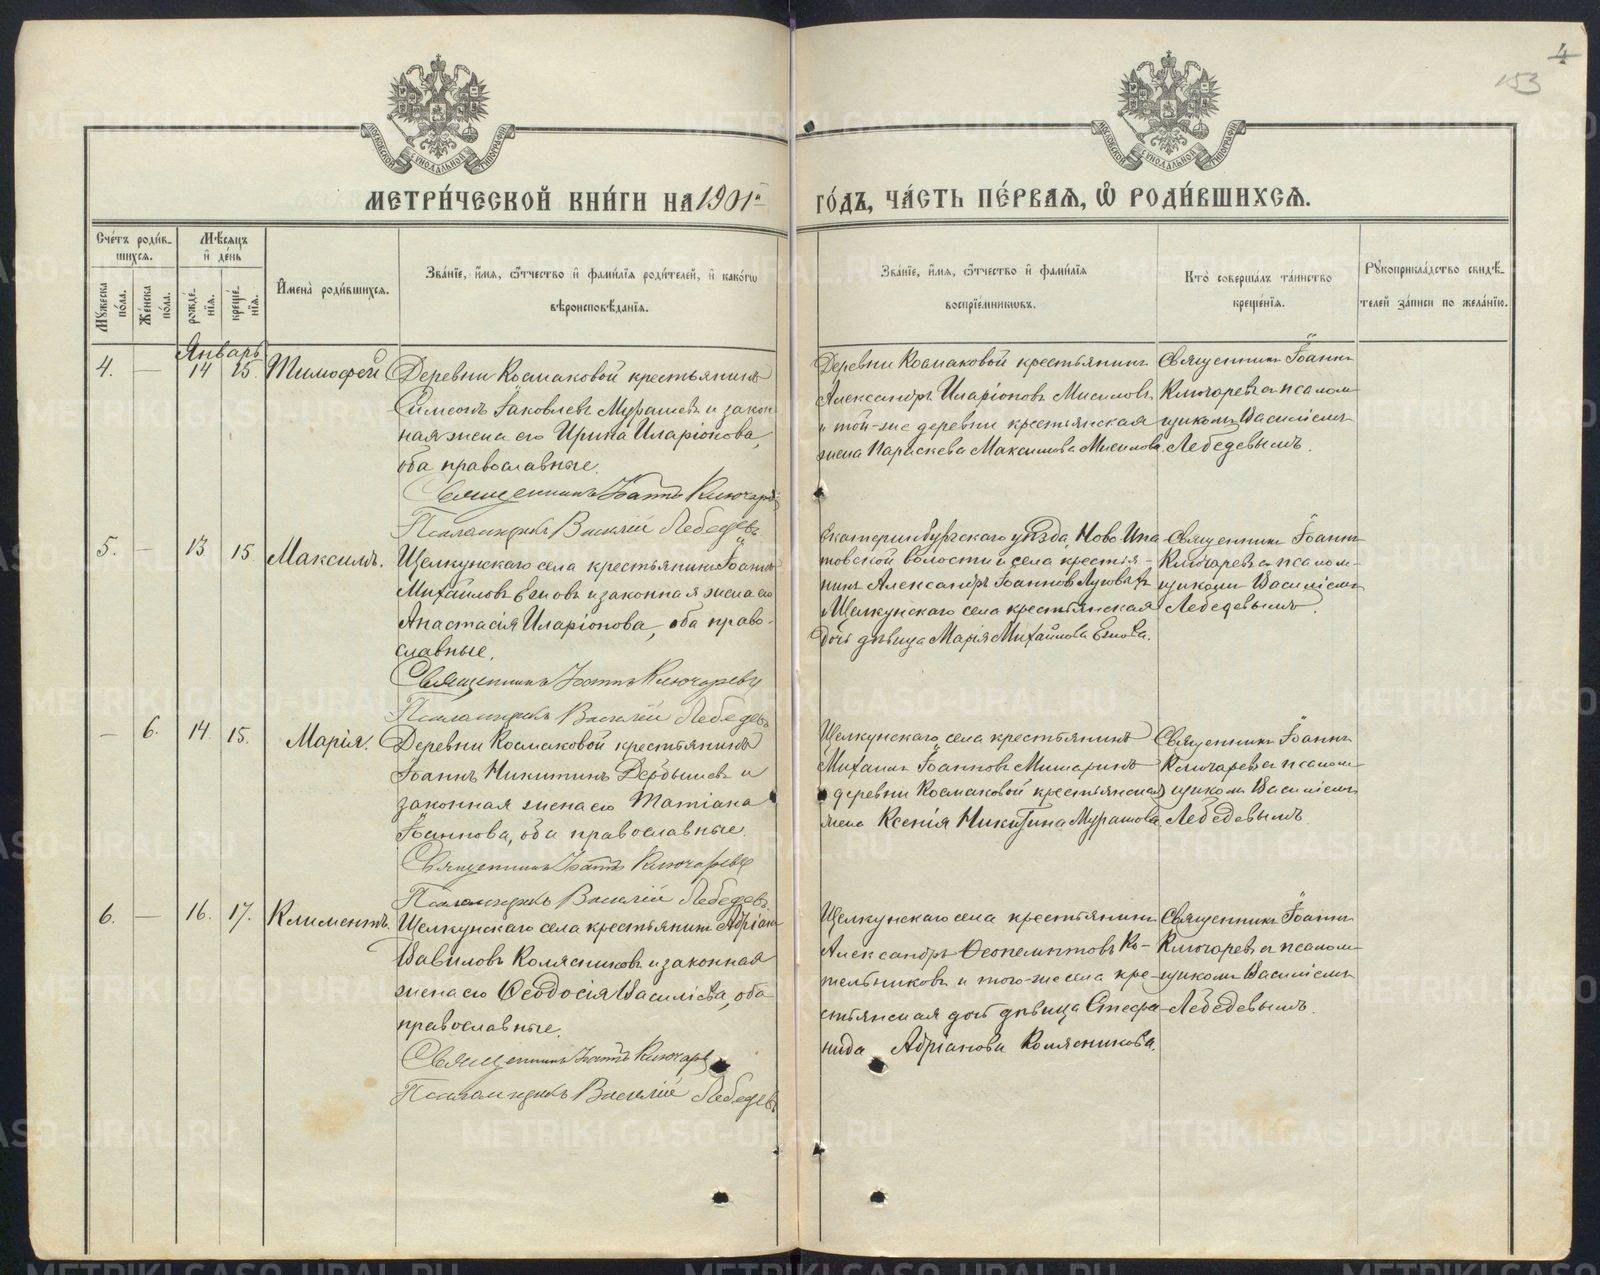 4
153
МОСКОВСКОЙ СѴНОДАЛЬНОЙ ТИПОГРАФІИ
МОСКОВСКОЙ СѴНОДАЛЬНОЙ ТИПОГРАФІИ
МЕТРИ́ЧЕСКОЙ КНИ́ГИ НА 1901й
ГО́ДЪ, ЧА́СТЬ ПЕ́РВАѦ, Ѡ҆ РОДИ́ВШИХСѦ.
Сче́тъ роди́в-
шихсѧ.
Мꙋжеска по́ла.
Же́нска по́ла.
Мѣ́сѧцъ
и҆ де́нь
рожде́-
нїѧ.
креще́-
нїѧ.
И҆мена̀ роди́вшихсѧ.
Зва́нїе, и҆́мѧ, ѻ҆́тчество и҆ фами́лїѧ роди́телей, и҆ како́гѡ
вѣроисповѣ́данїѧ.
Зва́нїе, и҆́мѧ, ѻ҆́тчество и҆ фами́лїѧ
воспрїе́мникѡвъ.
Кто̀ соверша́лъ та́инство
креще́нїѧ.
Рꙋкоприкла́дство свидѣ́-
телей за́писи по жела́нїю.
Январь
4. — 14 15. Тимофей
Деревни Космаковой крестьянинъ
Симеонъ Іаковлевъ Мурашевъ и закон-
ная жена его Ирина Иларіонова,
оба православные.
Священникъ Іоаннъ Ключарев
Псаломщикъ Василій Лебедевъ
Деревни Космаковой крестьянинъ
Александръ Иларіоновъ Мисиловъ
и той-же деревни крестьянская
жена Параскева Максимова Мисилова.
Священникъ Іоаннъ
Ключаревъ съ псалом-
щикомъ Василіемъ
Лебедевымъ.
5. — 13 15. Максимъ.
Щелкунскаго села крестьянинъ Іоаннъ
Михайловъ и законная жена его
Анастасія Иларіонова, оба право-
славные.
Священникъ Іоаннъ Ключаревъ
Псаломщикъ Василій Лебедевъ
Екатеринбургскаго уѣзда Ново Ипа-
товской волости и села крестья-
нинъ Александръ Іоанновъ
и Щелкунскаго села крестьянская
дочь дѣвица Марія Михайлова
Священникъ Іоаннъ
Ключаревъ съ псалом-
щикомъ Василіемъ
Лебедевымъ.
— 6. 14. 15. Марія.
Деревни Космаковой крестьянинъ
Іоаннъ Никитинъ Дербышевъ и
законная жена его Татіана
Іоаннова, оба православные.
Священникъ Іоаннъ Ключаревъ
Псаломщикъ Василій Лебедевъ.
Щелкунскаго села крестьянинъ
Михаилъ Іоанновъ Мишаринъ
и деревни Космаковой крестьянская
жена Ксенія Никитина Мурашова.
Священникъ Іоаннъ
Ключаревъ съ псалом-
щикомъ Василіемъ
Лебедевымъ.
6. — 16. 17. Климентъ.
Щелкунскаго села крестьянинъ Адріанъ
Вавиловъ Колясниковъ и законная
жена его Ѳеодосія Василіева, оба
православные.
Священникъ Іоаннъ Ключарев
Псаломщикъ Василій Лебедевъ
Щелкунскаго села крестьянинъ
Александръ Ѳеопемптовъ Ко-
тельниковъ и того-же села кре-
стьянская дочь дѣвица Стефа-
нида Адріанова Колясникова.
Священникъ Іоаннъ
Ключаревъ съ псалом-
щикомъ Василіемъ
Лебедевымъ.
METRIKI.GASO-URAL.RU